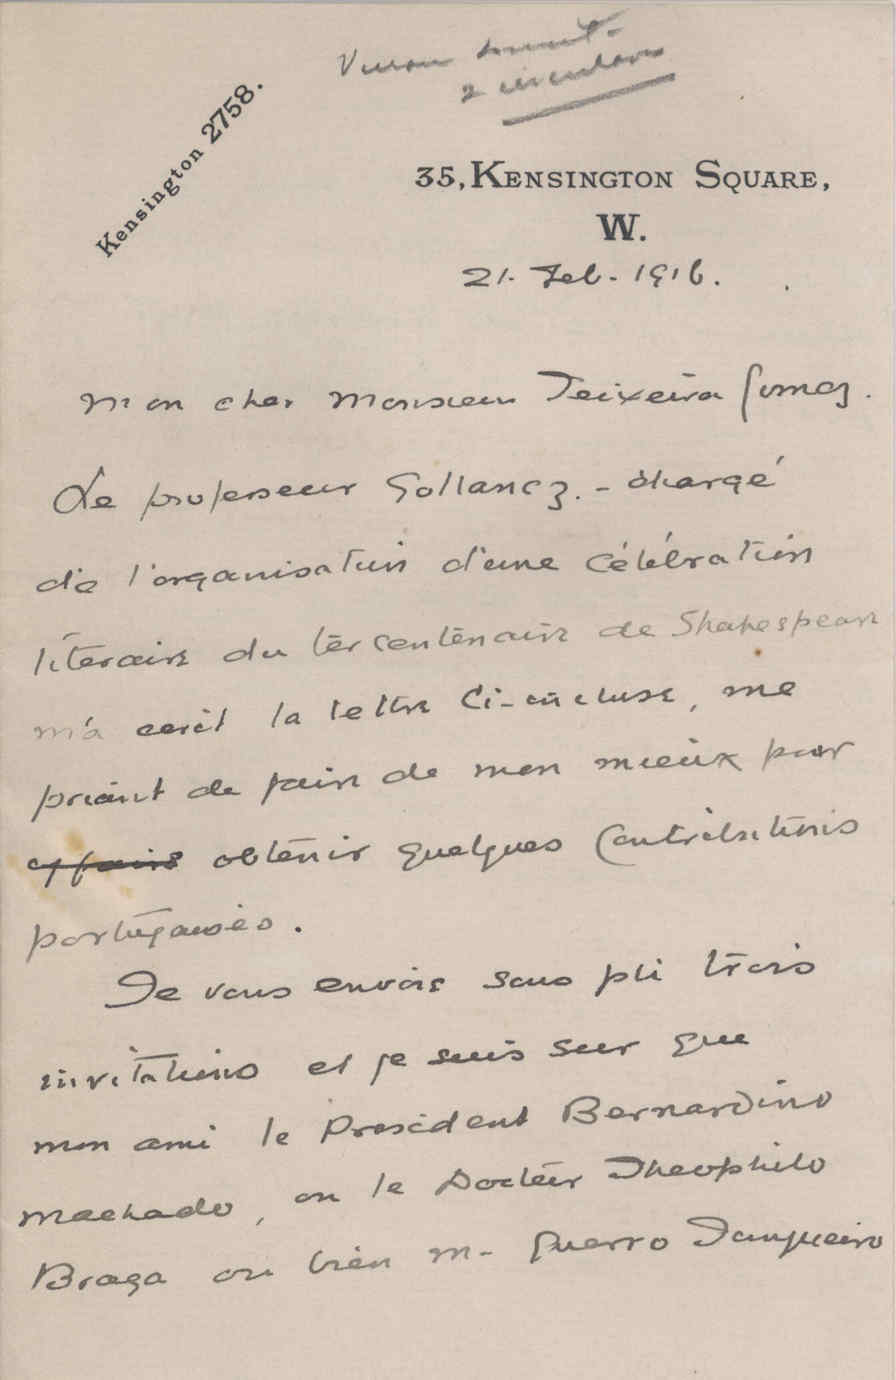 2 circulars
Kensington 2758.
35, KENSINGTON SQUARE,
W.
21. Feb. 1916.
Mon cher Monsieur Teixeira Gomez.
Le professeur Gollancz. - chargé
de l'organisation d'une célébration
litéraire du tercentenaire de Shakespeare
m'a ecrit la lettre ci-incluse, me
priant de faire de mon mieux pour
obtenir quelques contributions
portugaises.
Je vous envoie sous pli trois
invitations et je suis sur que
mon ami le President Bernardino
Machado, ou le Docteur Theophilo
Braga ou bien M- Guerro Junqueiro